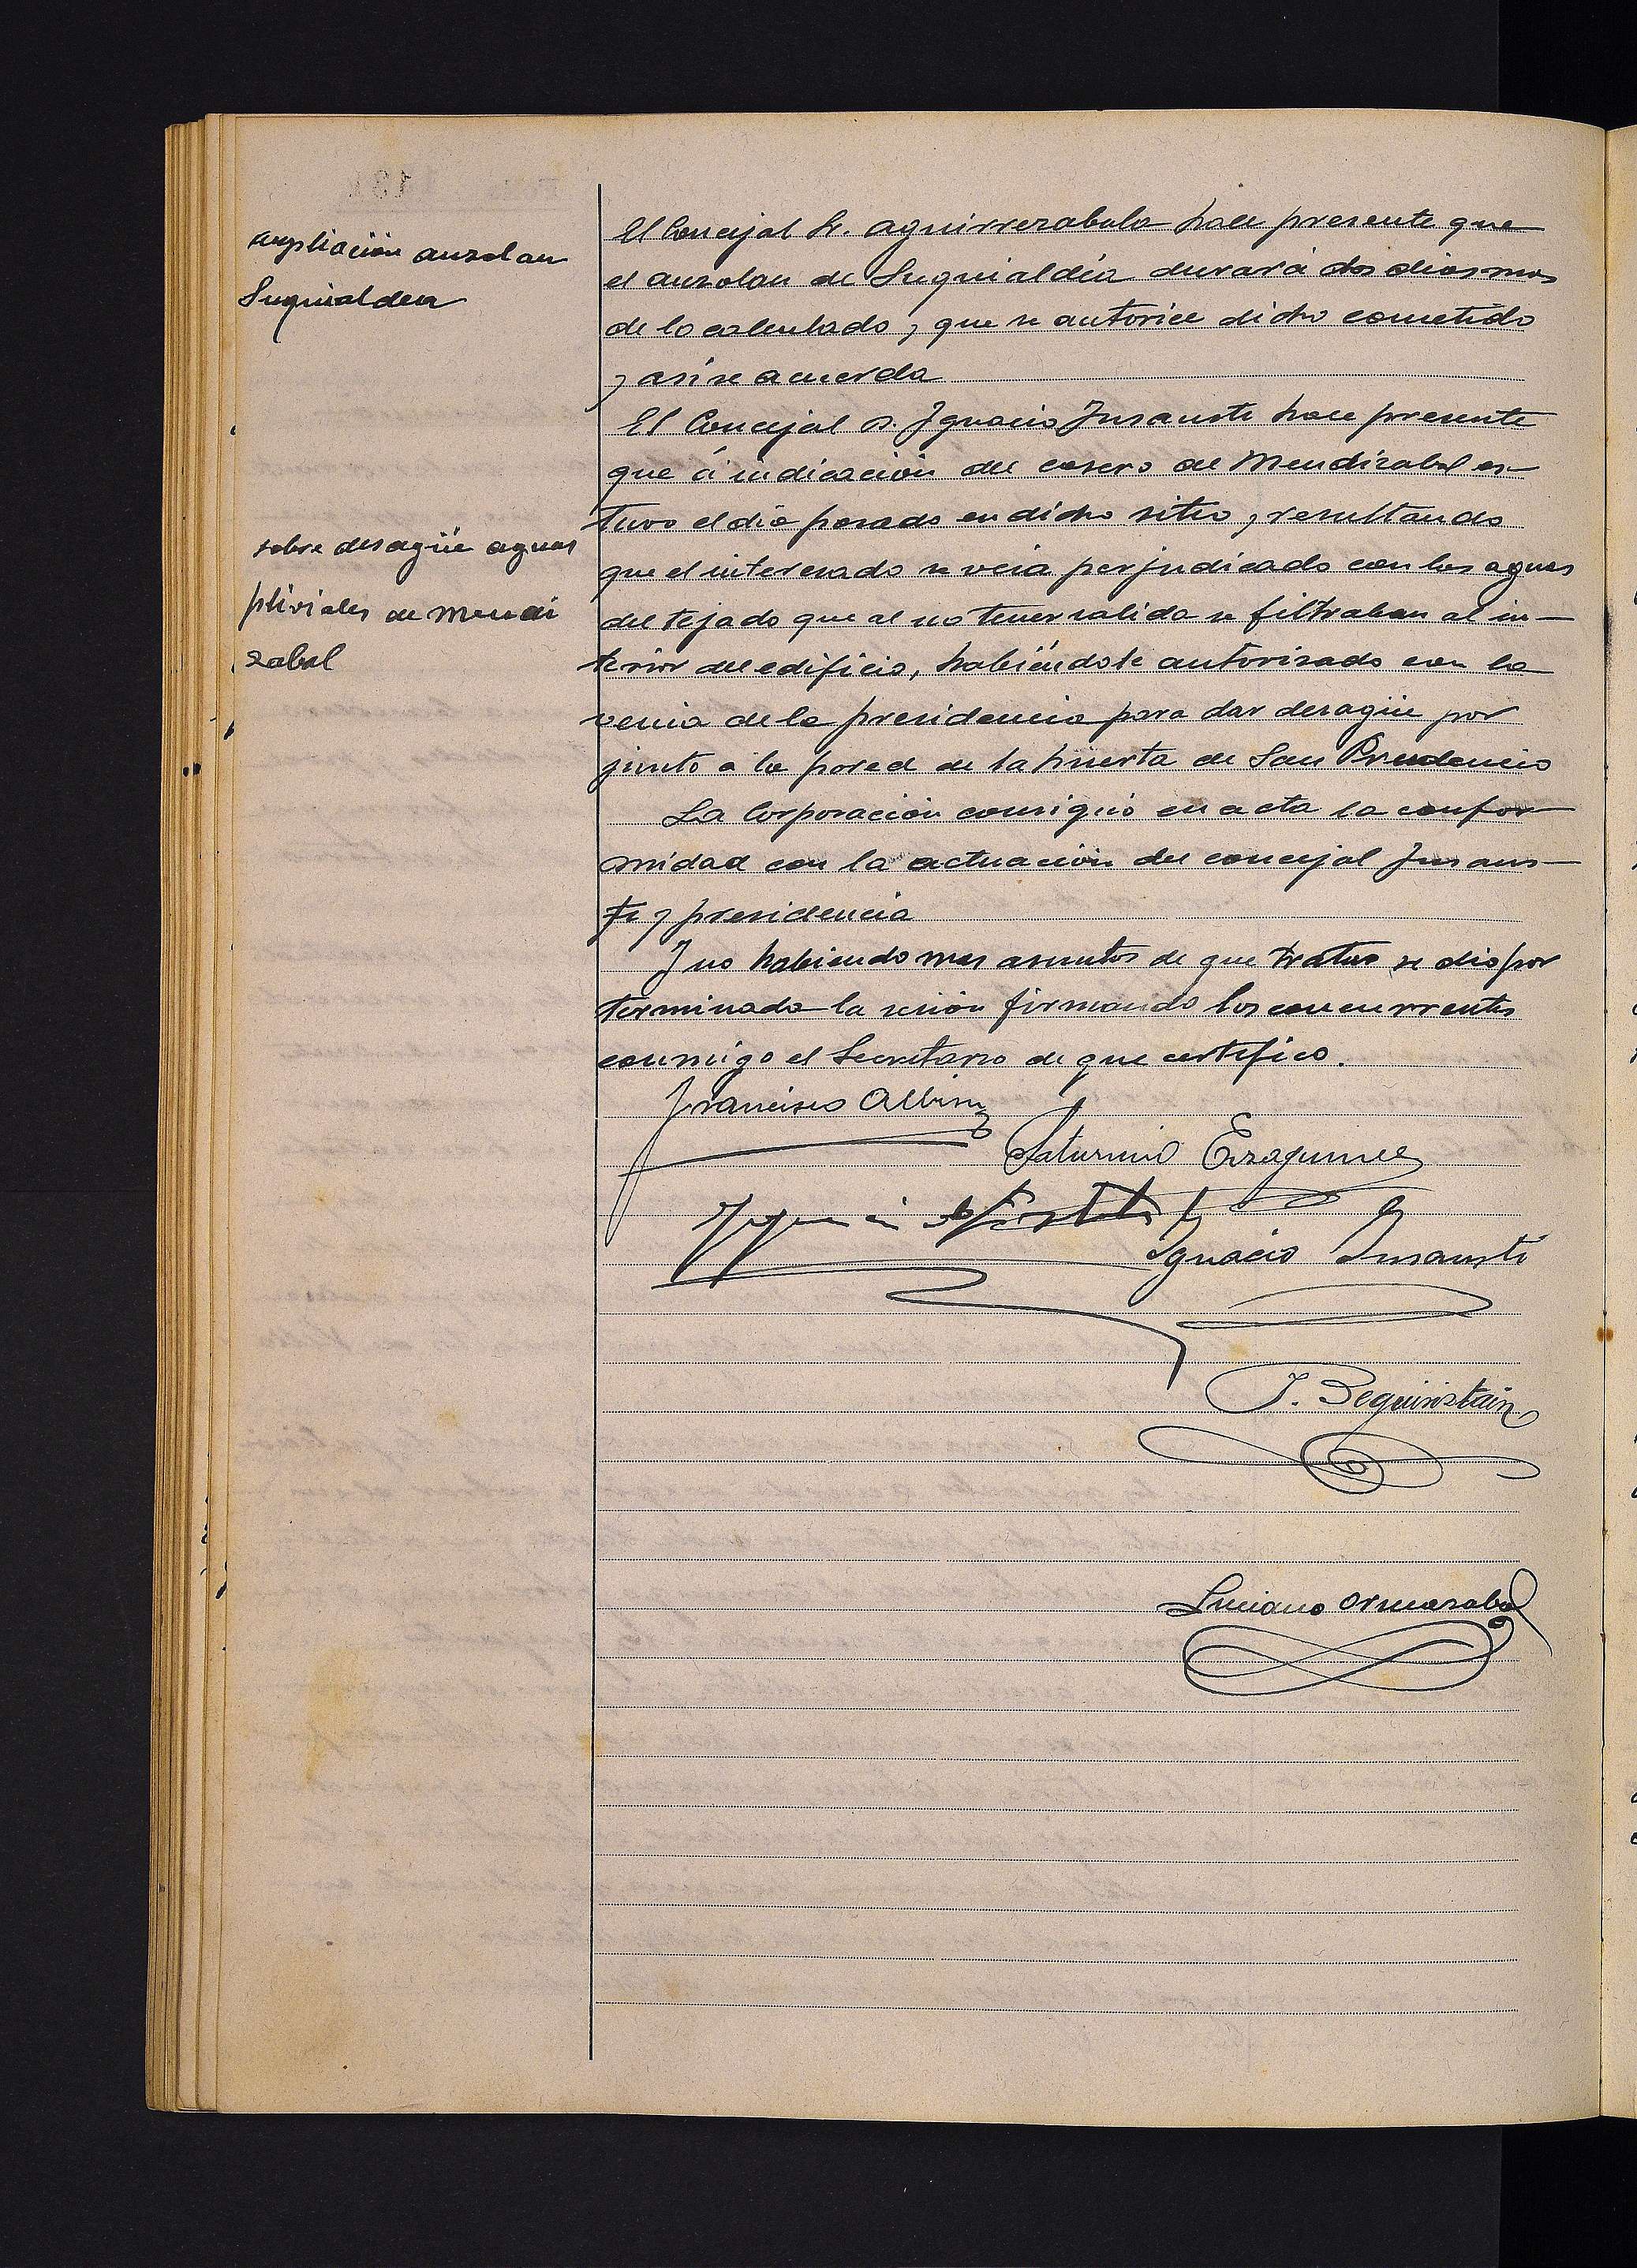 ampliación auzolan
Suquialdea
El Concejal Sr. Aguirrezabala hace presente que
el auzolan de Suquialdea durará dos dias mas
de lo calculado, que se autorice dicho cometido
y asi se acuerda
El Concejal D. Ignacio Insausti hace presente
que á indicación del casero de Mendizabal es-
tuvo el día pasado en dicho sitio, resultando
que el interesado se veia perjudicado con las aguas
del tejado que al no tener salida se filtraban al in-
terior del edificio, habiéndole autorizado con la
venia de la presidencia para dar desagüe por
junto a la pared de la huerta de San Prudencio
sobre desagüe aguas
pliviales de Mendi
zabal
La Corporación consignó en acta la confor
midad con la actuación del concejal Insaus-
ti y presidencia
Y no habiendo mas asuntos de que tratar se dio por
terminada la sesión firmando los concurrentes
conmigo el Secretario de que certifico.
Francisco Albisu
Saturnino
Ignacio Insausti
J. Beguiristain
Luciano Ormazabal